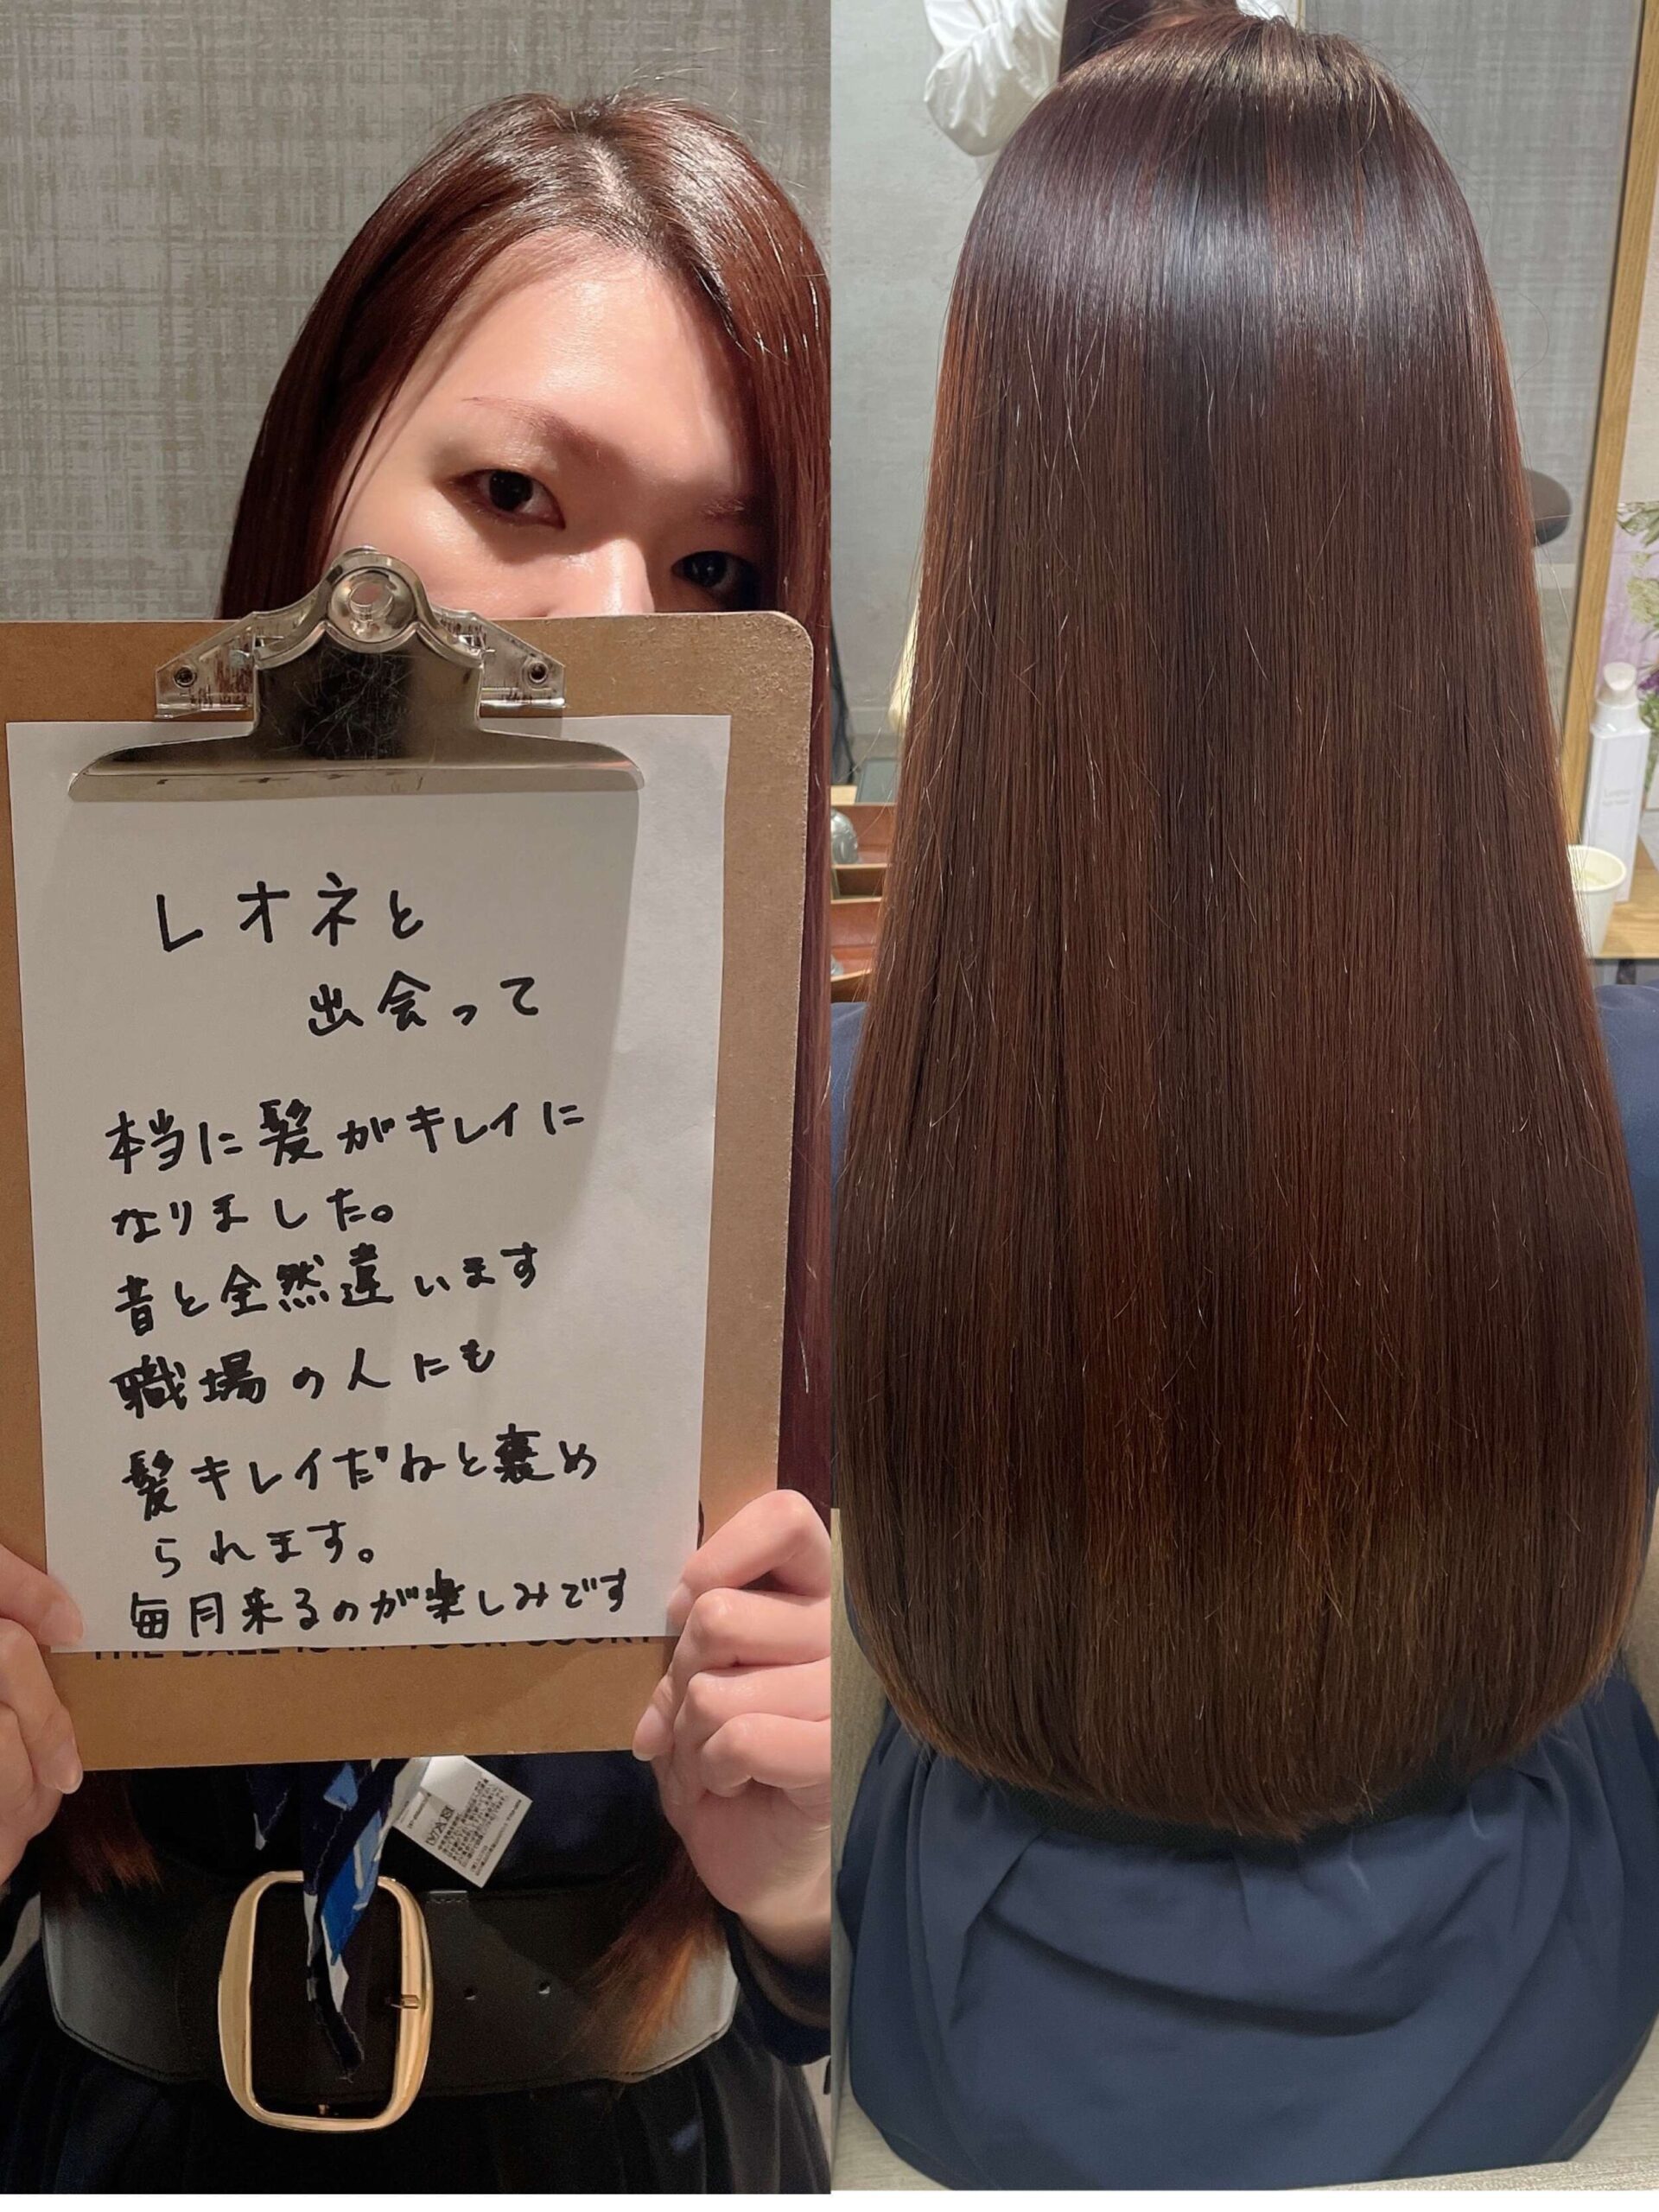 レオネと
出会って
本当に髪がキレイに
なりました。
昔と全然違います
職場の人にも
髪キレイだねと褒め
られます。
毎月来るのが楽しみです
THE BALL IS IN YOUR COURT